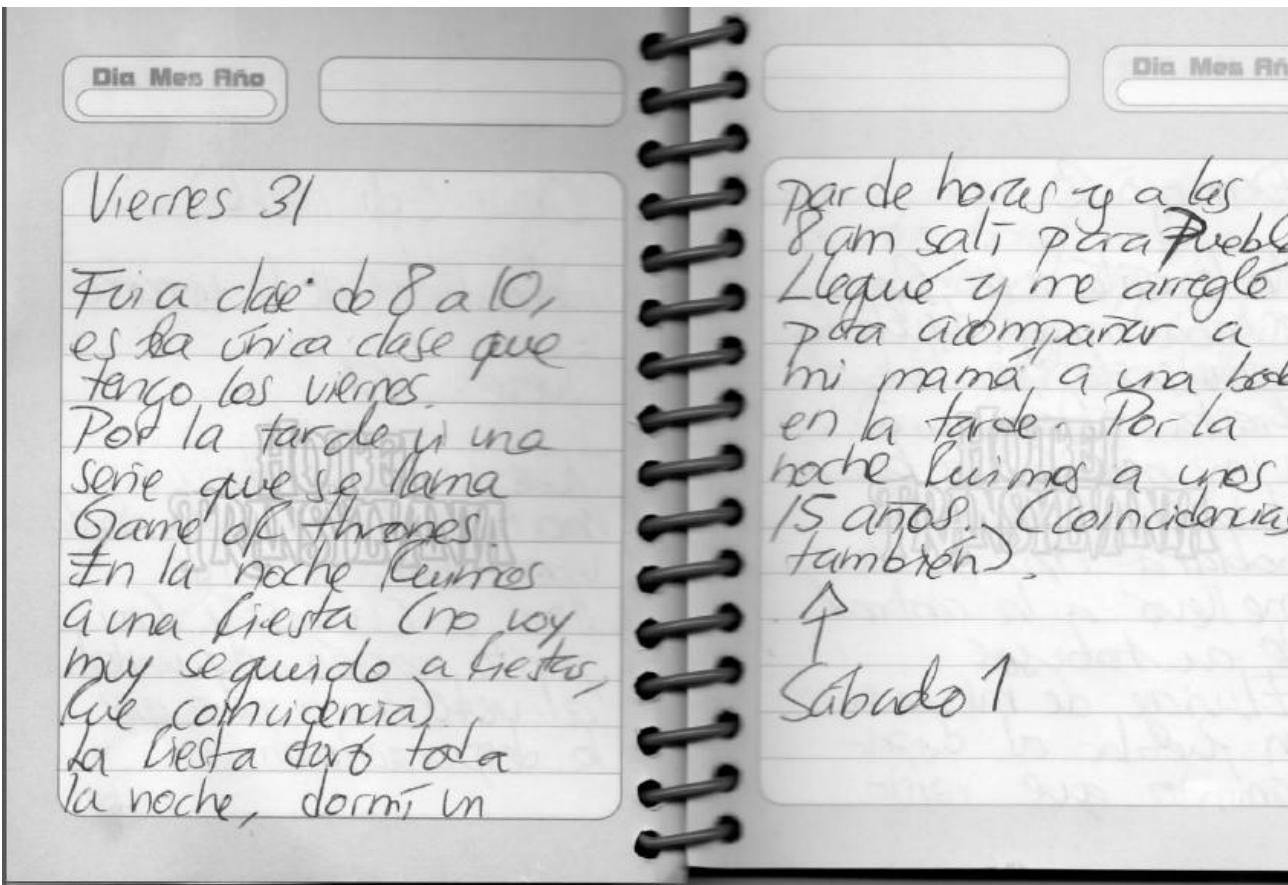 Dia Mes Año
Viernes 31
Fui a clase de 8 a 10,
es la única clase que
tengo los viernes.
Por la tarde vi una
serie que se llama
Game of thrones.
En la noche fuimos
a una fiesta (no voy
muy seguido a fiestas,
fue coincidencia).
La fiesta duró toda
la noche, dormí un
Dia Mes Añ
par de horas y a las
8 am salí para Puebla
Llegué y me arreglé
para acompañar a
mi mamá a una boda
en la tarde. Por la
noche fuimos a unos
15 años. (coincidencias
también).
Sábado 1